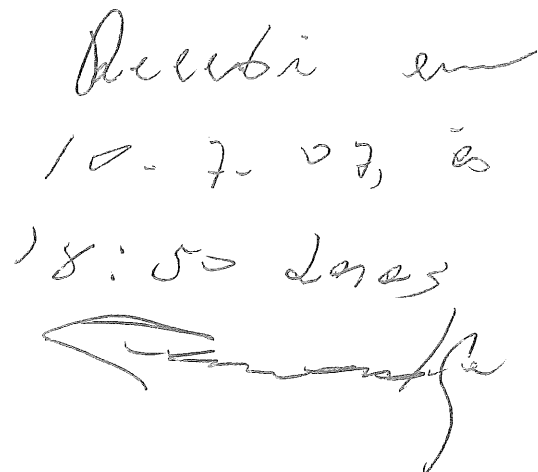 Recebi em
10.7.07, às
18:50 horas